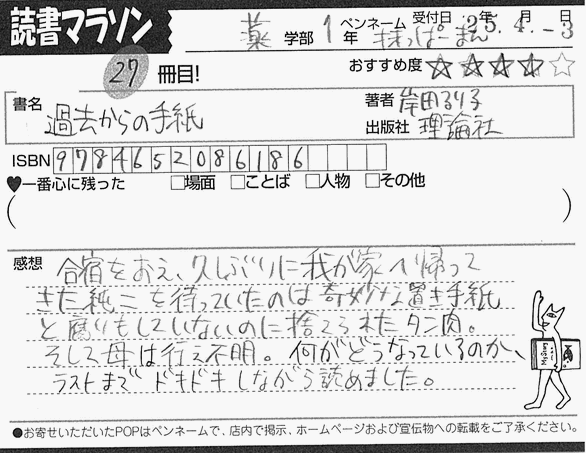 読書マラソン
薬 学部 1年 ペンネーム 抹っぱーまん 受付日 25年 4月 -3日
27 冊目!
おすすめ度 ★★★★☆
書名 過去からの手紙
著者 岸田るり子
出版社 理論社
ISBN 9784652086186
♥一番心に残った □場面 □ことば □人物 □その他
( )
感想 合宿をおえ、久しぶりに我が家へ帰って
きた純二を待っていたのは奇妙な置き手紙
と腐りもしていないのに捨てられたタン肉。
そして母は行方不明。何がどうなっているのか、
ラストまでドキドキしながら読めました。
●お寄せいただいたPOPはペンネームで、店内で掲示、ホームページおよび宣伝物への転載をご了承ください。